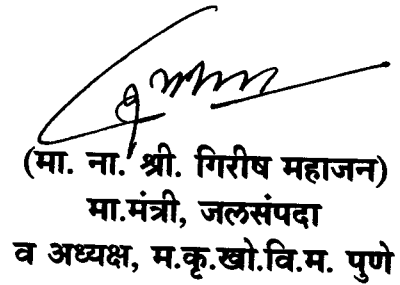 (मा. ना. श्री. गिरीष महाजन)
मा.मंत्री, जलसंपदा
व अध्यक्ष, म.कृ.खो.वि.म. पुणे